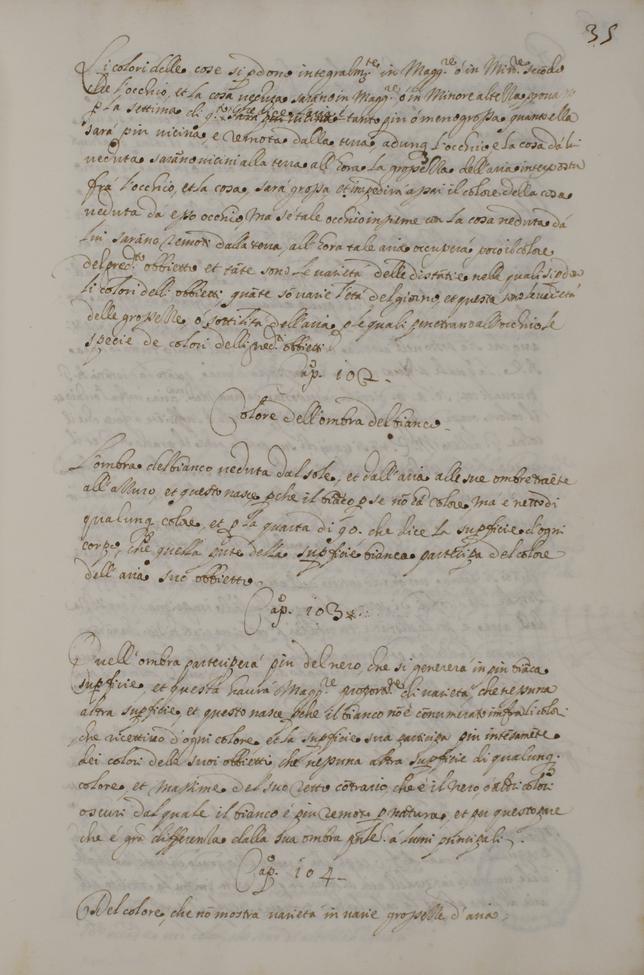 35
Li colori delle cose si p̱dono integralm.te in Magg.re ó in Min.re secõdo
che l'occhio, et la cosa veduta sarano in Magg.re ó in Minore altezza
p̱ la settima di q.o
sará piu vicina, e remota dalla terra, adunq. l'occhio e la cosa da lui
veduta sarano vicini alla terra all'hora la grossezza dell'aria interposta
frá l'occhio, et la cosa, sará grossa et impedirá assai il colore della cosa
veduta da esso occhio, ma sé tale occhio insieme con la cosa veduta dá
lui sarano remoti dalla terra, all'hora tale aria occuperá poco il colore
del pred.to obbietto et tãte sono le varietá delle distãtie nelle quali si p̱dono
li colori delli obbietti quãte sõ varie l'etá del giorno, et quante sono le varietá
delle grossezze, ó sottilitá dell'aria p̱ le quali penetrano all'occhio le
spetie de colori delli pred.i obbietti
Cap. 102.
Colore dell'ombra del bianco.
L'ombra del bianco veduta dal sole, et dall'aria há le sue ombre traẽte
all'azzuro, et questo nasce p̱che il biãco p̱ se nõ há colore, ma é netto di
qualunq. colore, et p̱ la quarta di q.o che dice la sup̱ficie d'ogni
corpo, che quella parte della sup̱ficie bianca participa del colore
dell'aria suo obbietto.
Cap. 103
Quell'ombra participerá piu del nero, che si genererá in piu biãca
sup̱ficie, et questa haurá Magg.re di varietá, che nessuna
altra sup̱ficie, et questo nasce p̱che il bianco nõ é cõnumerato infra li colori
che ricettino d'ogni colore, et la sup̱ficie sua participa piu intesamẽte
dei colori delli suoi obbietti, che nessuna altra sup̱ficie di qualunq.
colore, et massime del suo retto cõtrario, che é il nero ó altri colori
oscuri dal quale il bianco é piu remoto p̱ natura, et pu questo pare
che é grã differẽtia dalla sua ombra á lumi principali.
Cap. 104
Del colore, che nõ mostra varietá in varie grossezze d'aria.